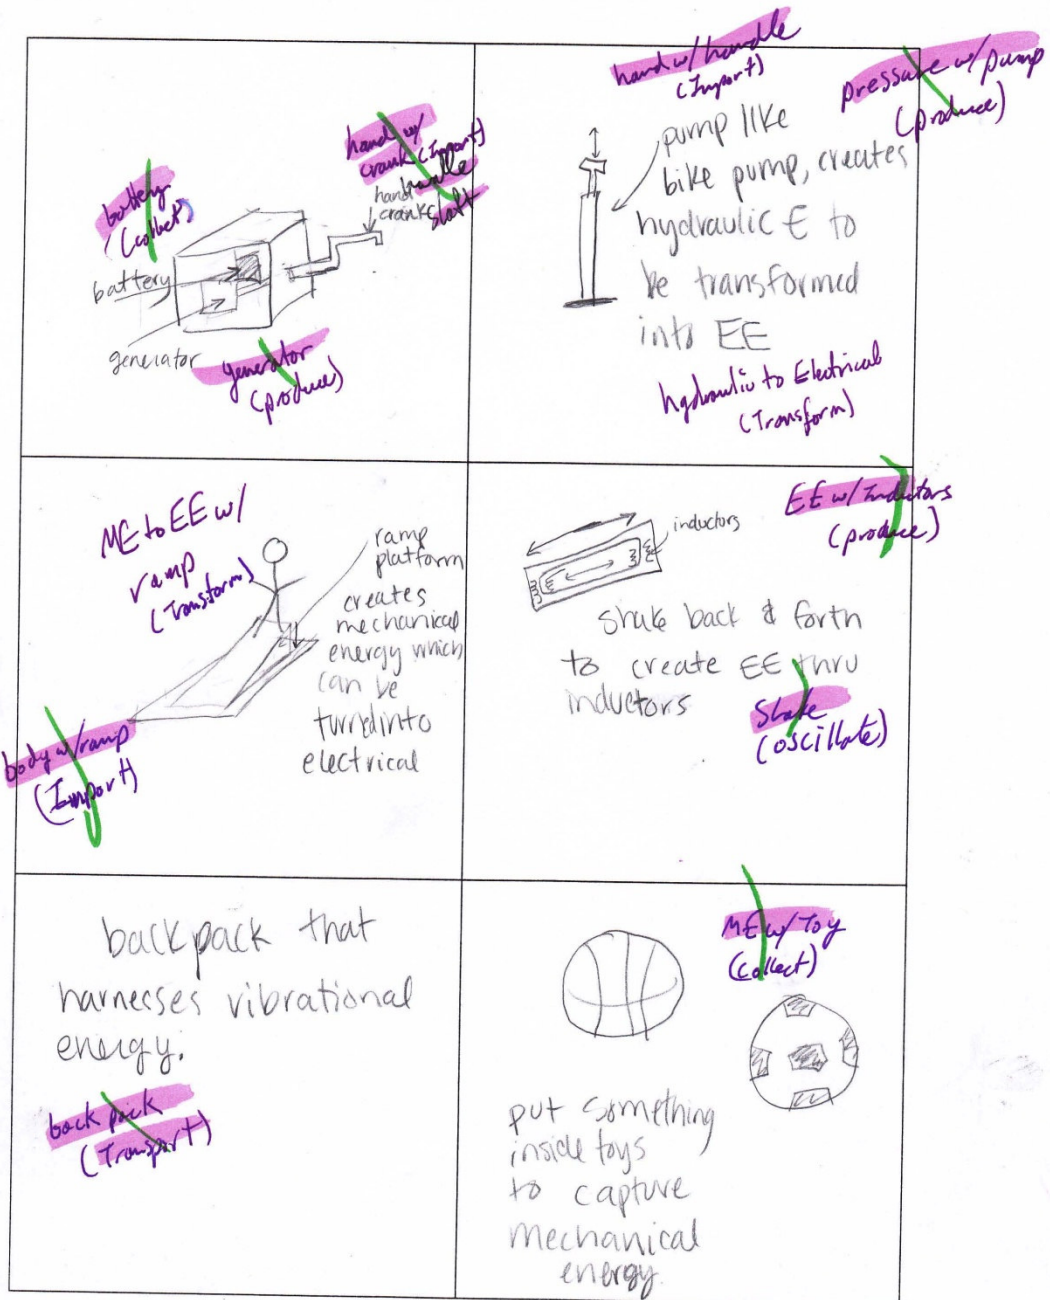 hand w/
crank (Import)
handle
shaft
hand
crank
battery
(collect)
battery
generator
generator
(produce)
hand w/ handle
(Import)
pressure w/ pump
(produce)
pump like
bike pump, creates
hydraulic E to
be transformed
into EE
hydraulic to Electrical
(Transform)
ME to EE w/
ramp
(Transform)
ramp
platform
creates
mechanical
energy which
can be
turned into
electrical
body w/ ramp
(Import)
EE w/ Inductors
(produce)
inductors
shake back & forth
to create EE thru
inductors
Shake
(oscillate)
backpack that
harnesses vibrational
energy.
back pack
(Transport)
ME w/ Toy
(collect)
put something
inside toys
to capture
mechanical
energy.